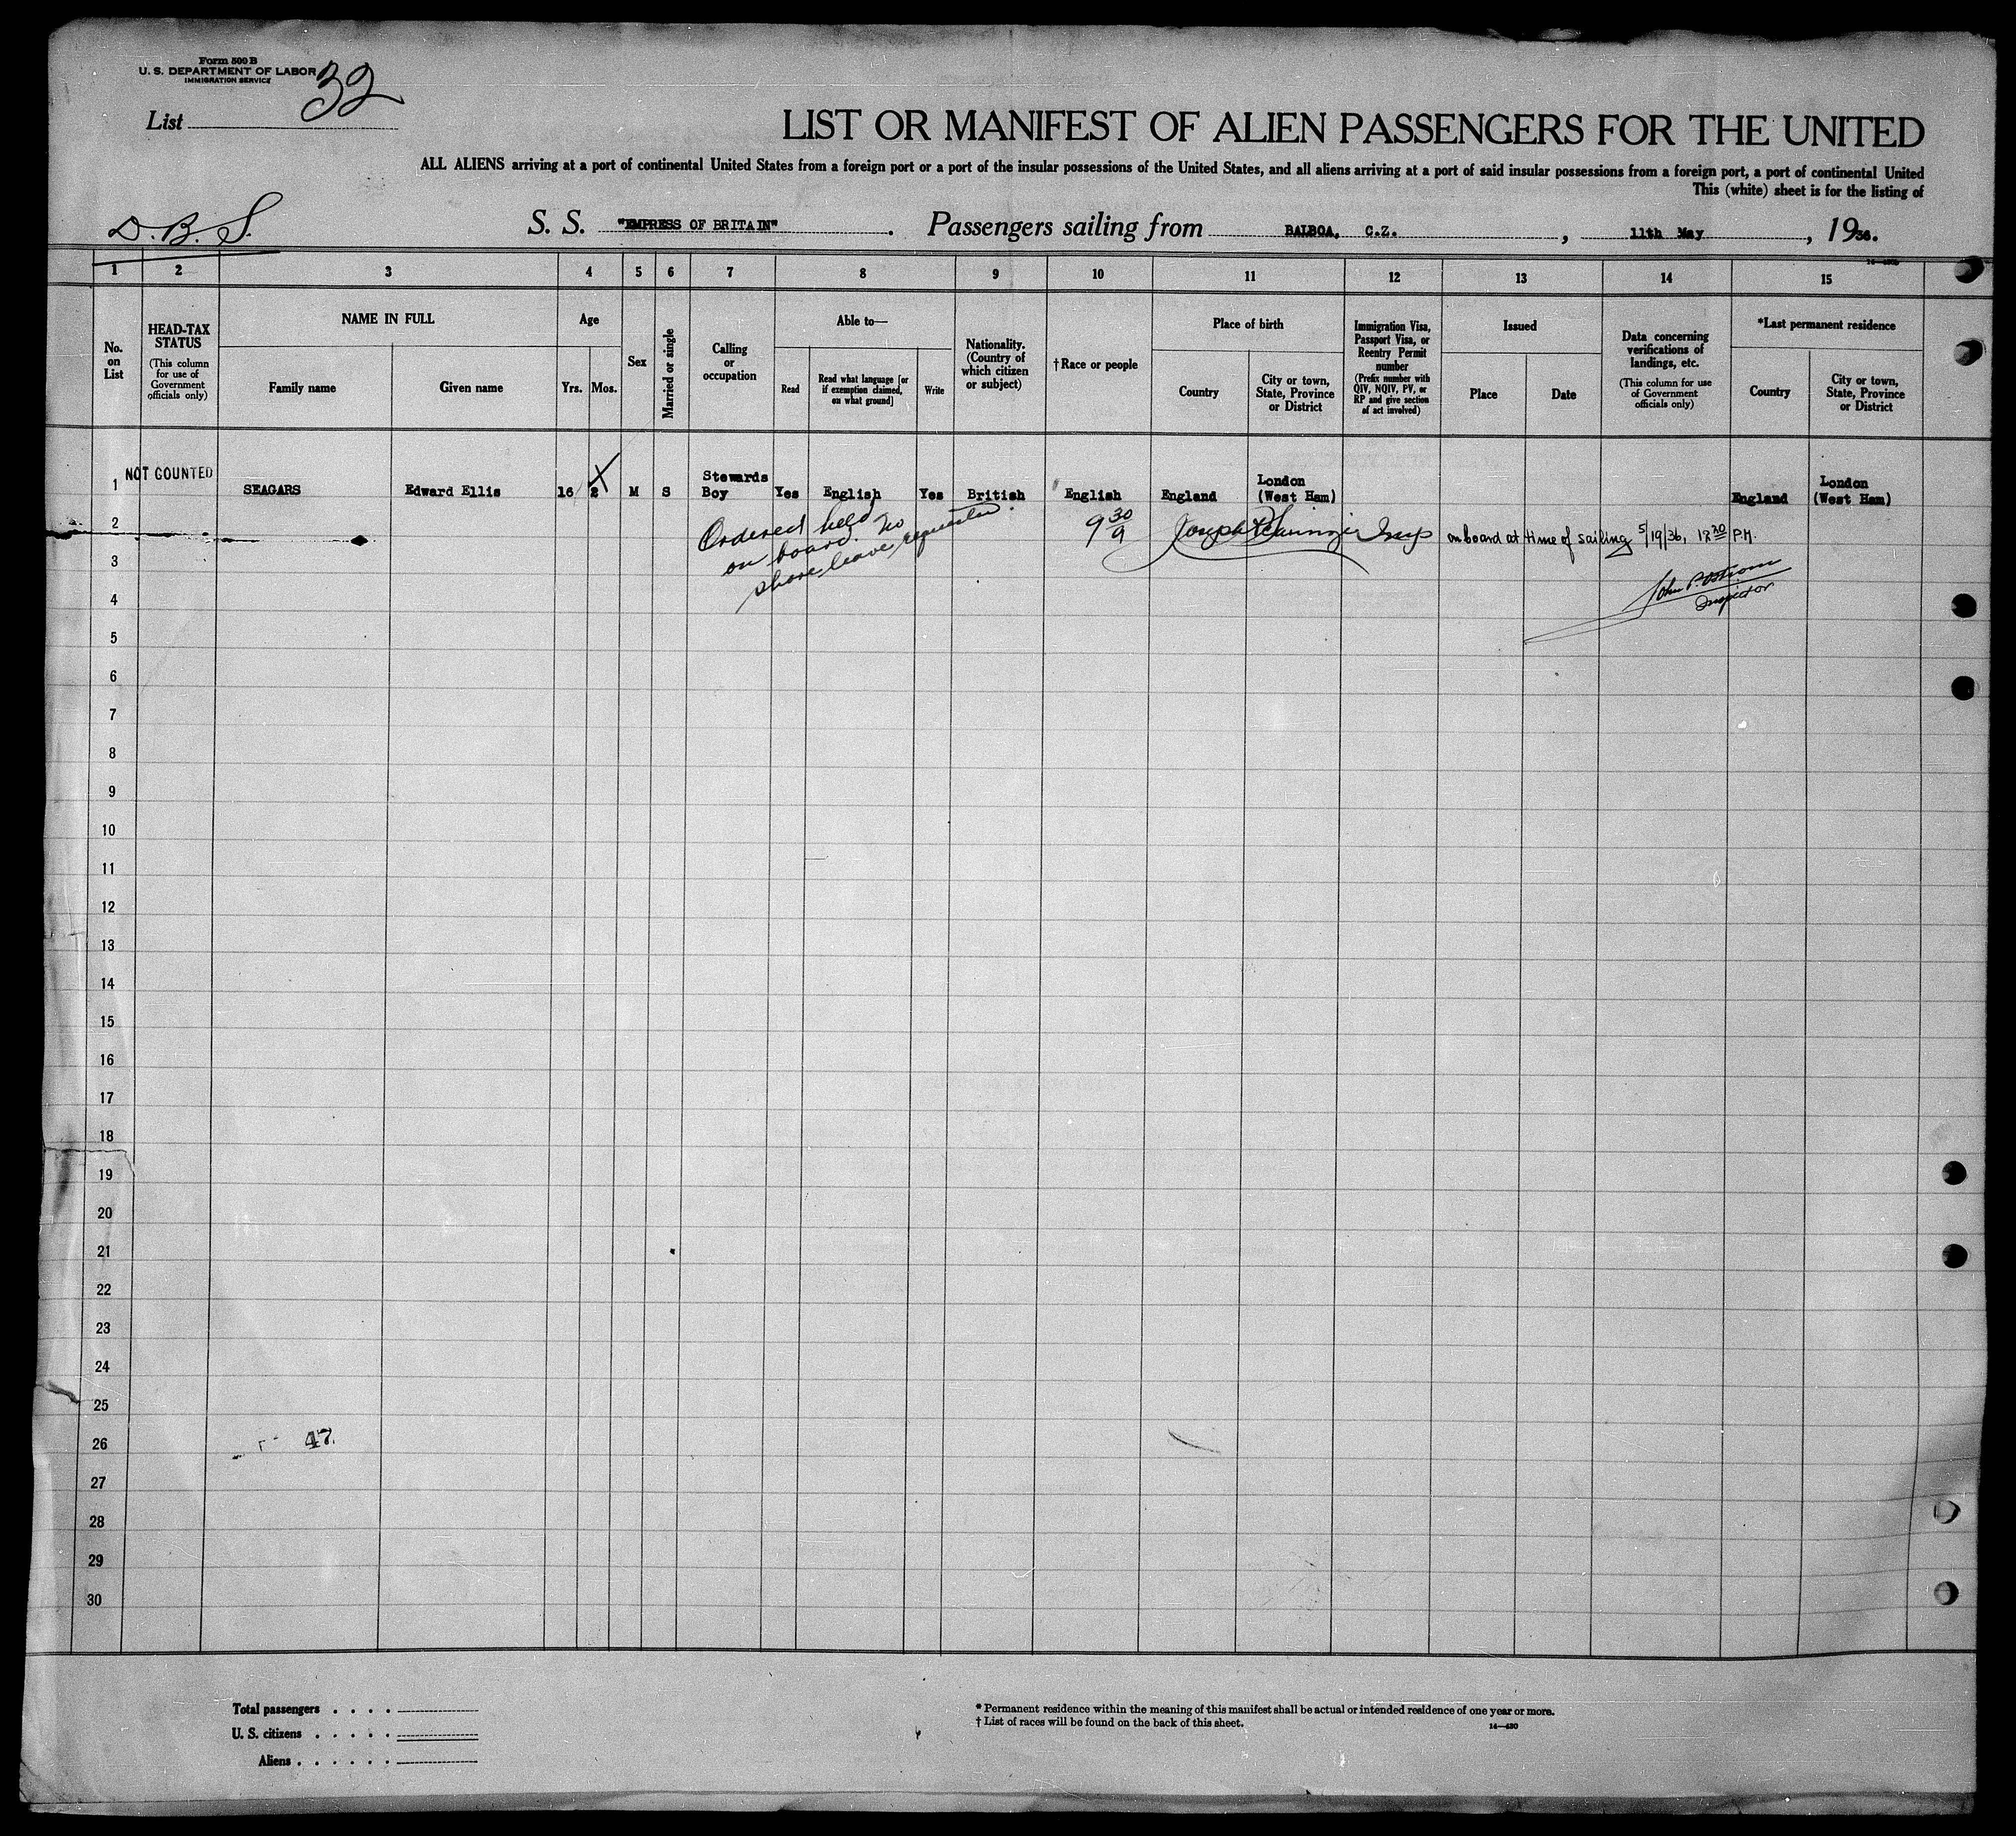 Form 500 B
U. S. DEPARTMENT OF LABOR
IMMIGRATION SERVICE
List 32
LIST OR MANIFEST OF ALIEN PASSENGERS FOR THE UNITED
ALL ALIENS arriving at a port of continental United States from a foreign port or a port of the insular possessions of the United States, and all aliens arriving at a port of said insular possessions from a foreign port, a port of continental United
This (white) sheet is for the listing of
D. B. S.
S. S. "EMPRESS OF BRITAIN". Passengers sailing from BALBOA, C.Z., 11th May, 1936.
1 2 3 4 5 6 7 8 9 10 11 12 13 14 15
No. on List
HEAD-TAX STATUS
(This column for use of Government officials only)
NAME IN FULL
Family name
Given name
Age
Yrs.
Mos.
Sex
Married or single
Calling or occupation
Able to—
Read
Read what language [or if exemption claimed, on what ground]
Write
Nationality. (Country of which citizen or subject)
†Race or people
Place of birth
Country
City or town, State, Province or District
Immigration Visa, Passport Visa, or Reentry Permit number
(Prefix number with QIV, NQIV, PV, or RP and give section of act involved)
Issued
Place
Date
Data concerning verifications of landings, etc.
(This column for use of Government officials only)
*Last permanent residence
Country
City or town, State, Province or District
1 NOT COUNTED SEAGARS Edward Ellis 16 2 X M S Stewards Boy Yes English Yes British English England London (West Ham) England London (West Ham)
Ordered held
on board. No
shore leave requested.
9 30/9
Joseph Insp
on board at time of sailing 5/19/36, 12 30 P.M.
John P. Ostrom
Inspector
2
3
4
5
6
7
8
9
10
11
12
13
14
15
16
17
18
19
20
21
22
23
24
25
26
47
27
28
29
30
Total passengers . . . .
U. S. citizens . . . . .
Aliens . . . . . .
* Permanent residence within the meaning of this manifest shall be actual or intended residence of one year or more.
† List of races will be found on the back of this sheet.
14—430